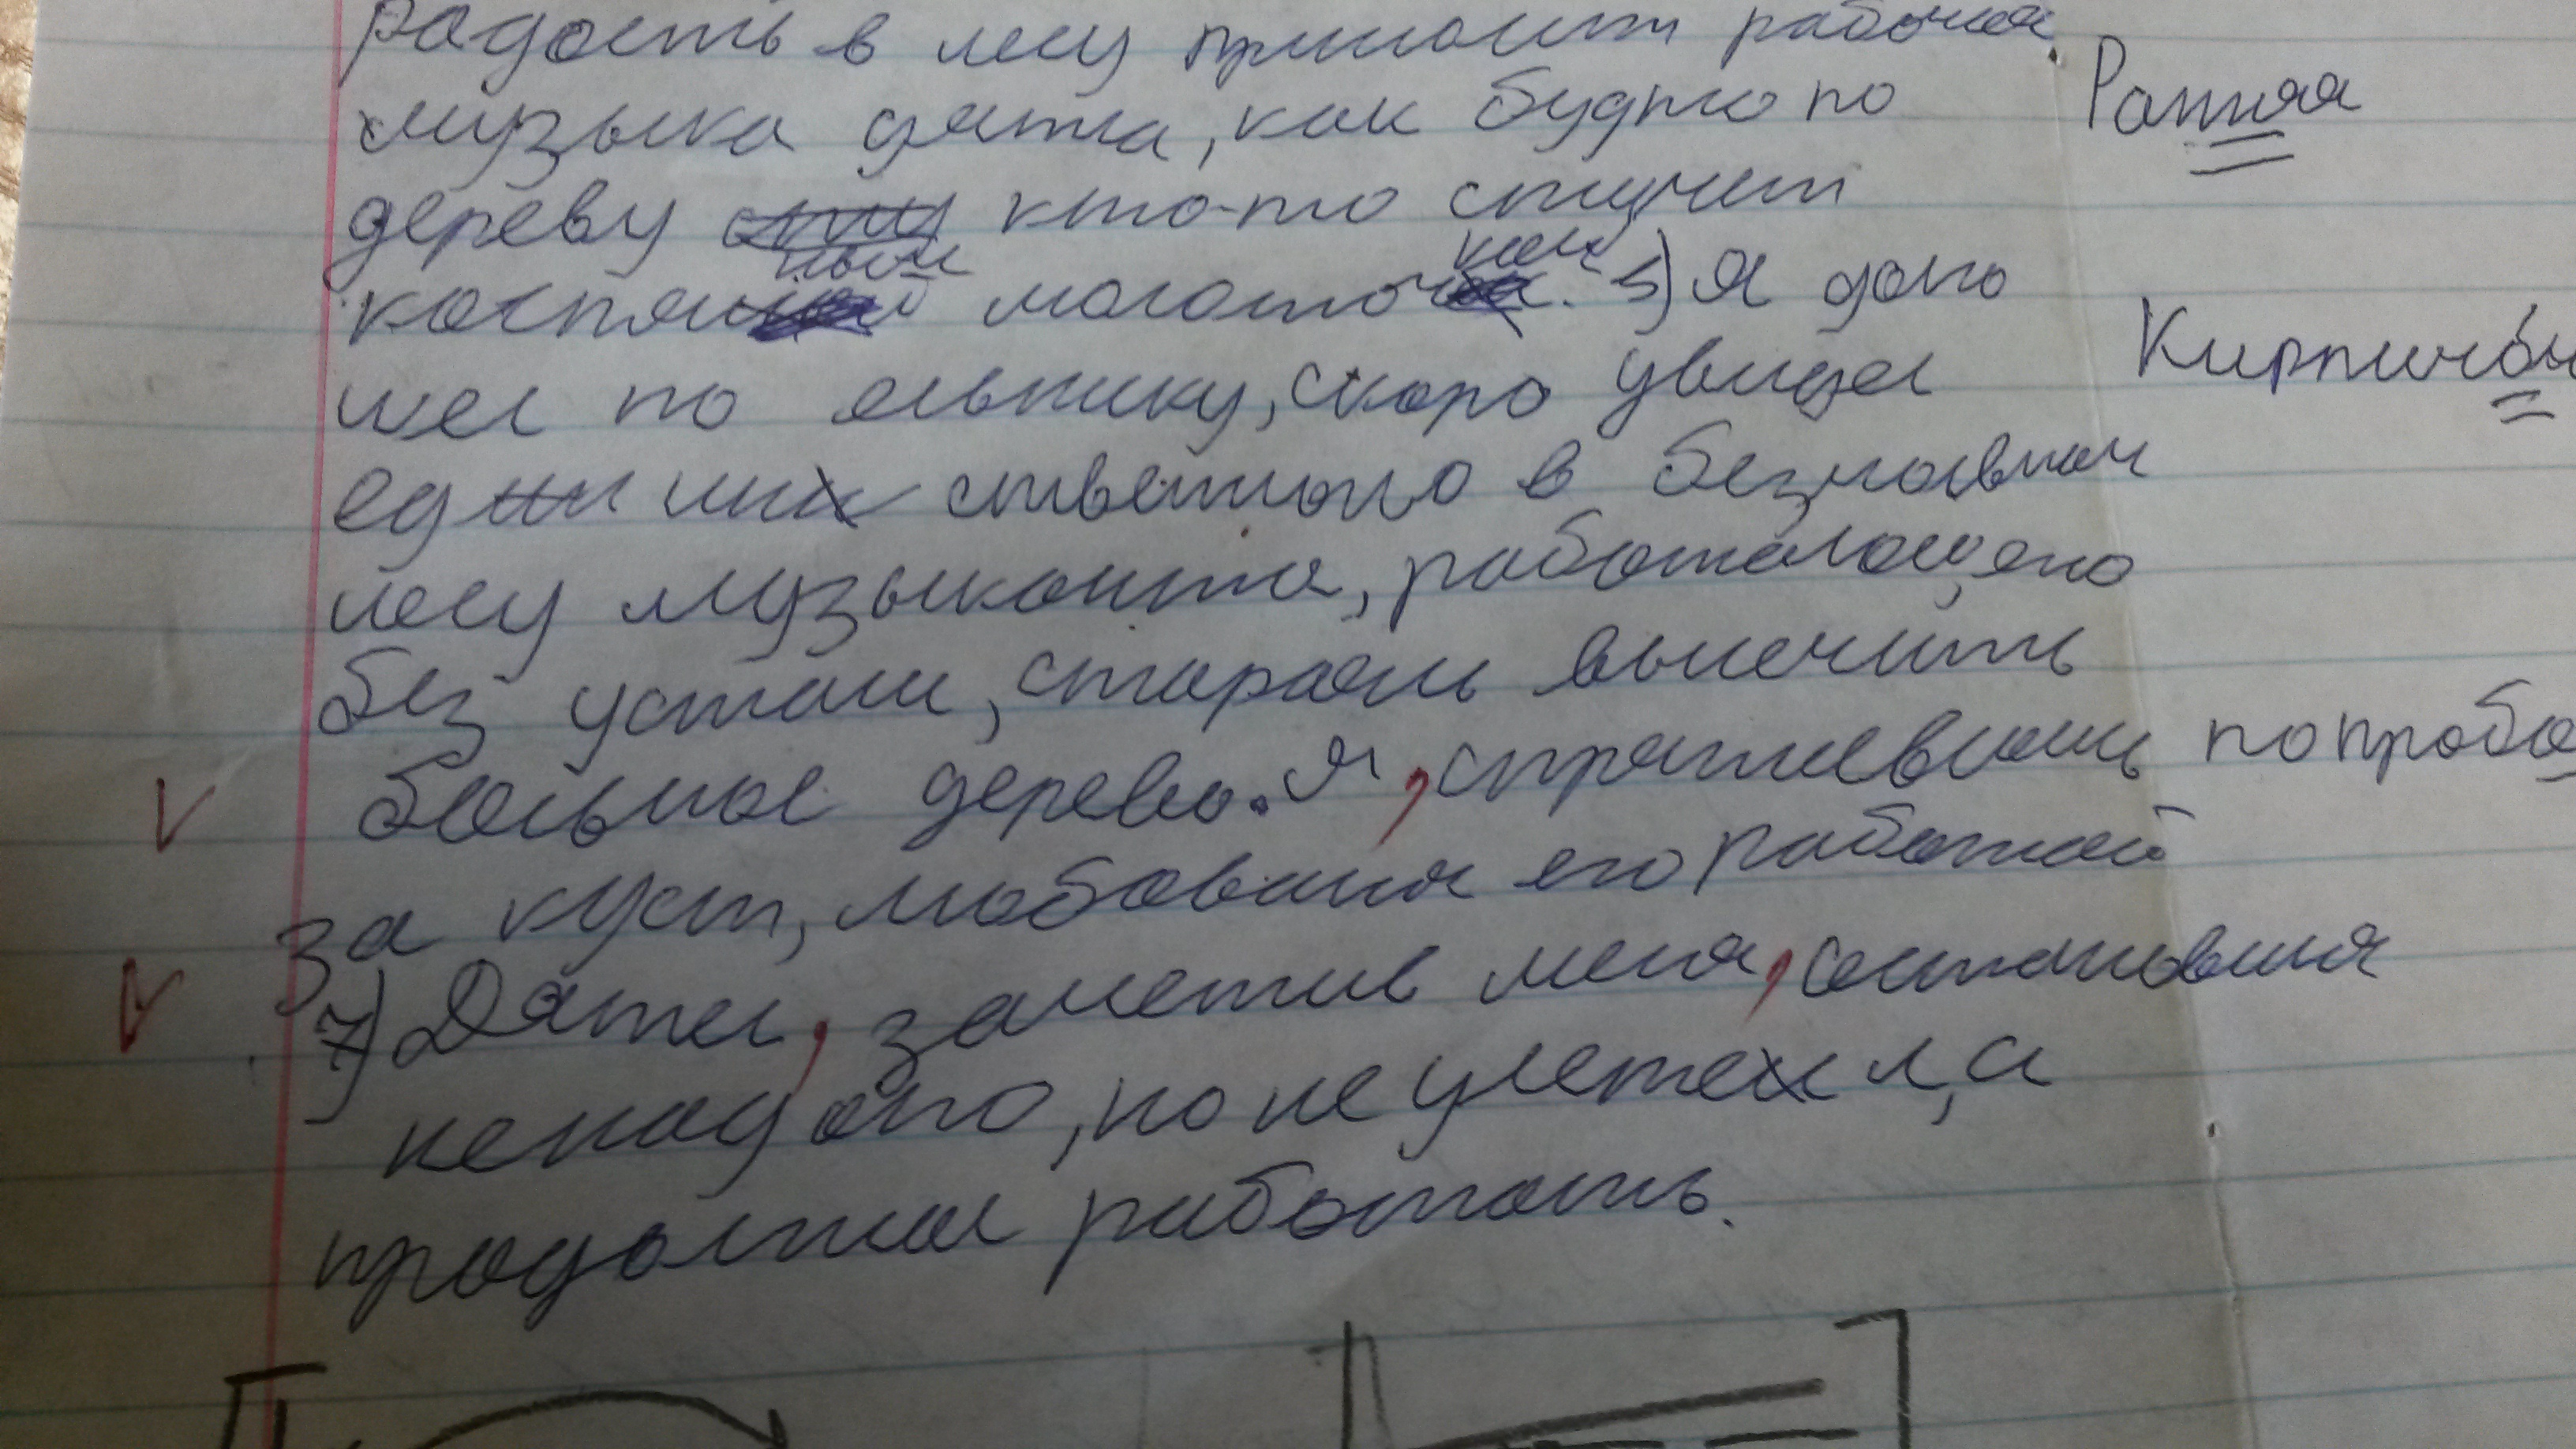 радость в лесу приносит рабочая
музыка дятла, как будто по
дереву кто-то стучит
костяным молоточком. 5) Я долго
шел по ельнику, скоро увидел
единственного в безмолвном
лесу музыканта, работающего
без устали, стараясь вылечить
больное дерево. Я, спрятавшись
за куст, любовался его работой
7) Дятел, заметив меня, остановился
ненадолго, но не улетел, а
продолжал работать.
Ранняя
Кирпичо́м
попробо